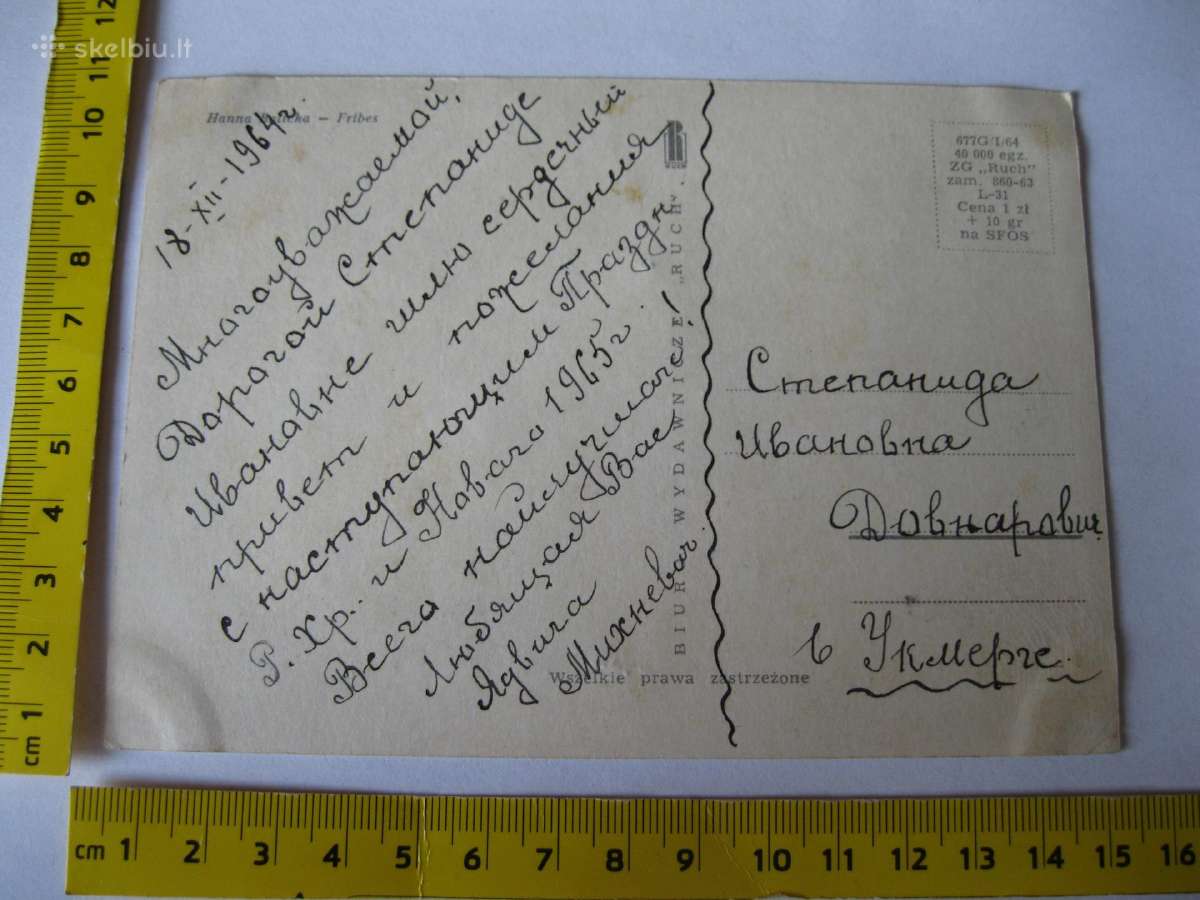 skelbiu.lt
Hanna – Fribes
18-XII-1964г.
Многоуважаемой,
Дорогой Степаниде
Ивановне шлю сердечный
привет и пожелания
с наступающим Праздн.
Р. Хр. и Новаго 1965 г.
Всего найлучшаго!
Любящая Вас
Ядвига
Михневич.
BIURO WYDAWNICZE „RUCH”
Wszelkie prawa zastrzeżone
677G/I/64
40 000 egz.
ZG „Ruch”
zam. 860-63
L-31
Cena 1 zł
+ 10 gr
na SFOS
Степанида
Ивановна
Довнарович
в Укмерге.
12
11
10
9
8
7
6
5
4
3
2
1
cm
cm 1 2 3 4 5 6 7 8 9 10 11 12 13 14 15 16